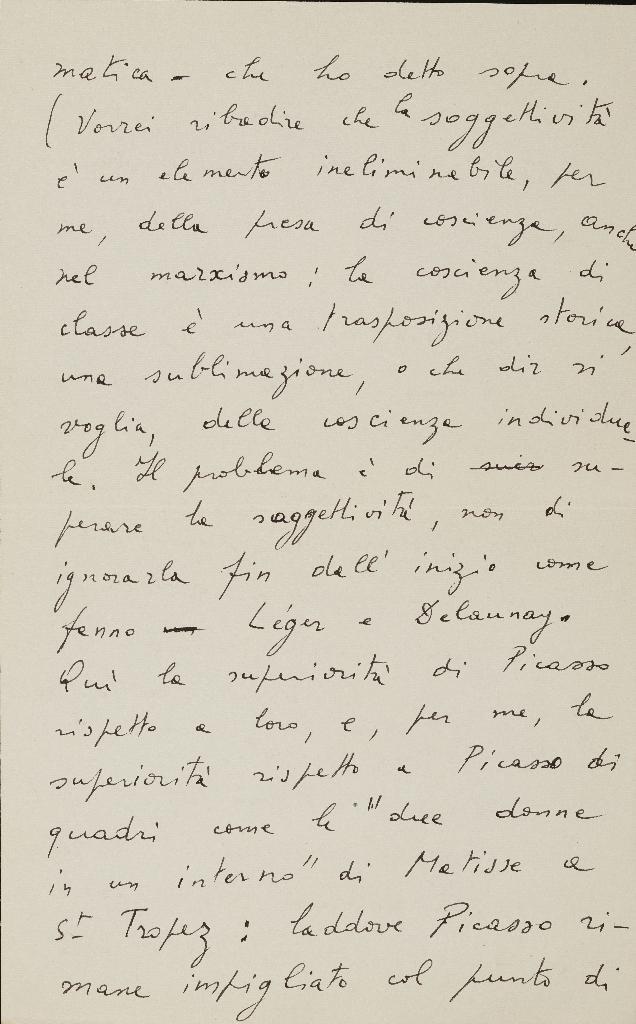 matica – che ho detto sopra.
(Vorrei ribadire che la soggettività
è un elemento ineliminabile, per
me, della presa di coscienza, anche
nel marxismo; la coscienza di
classe è una trasposizione storica,
una sublimazione, o che dir si
voglia, della coscienza individua-
le. Il problema è di su-
perare la soggettività, non di
ignorarla fin dall' inizio come
fanno Léger e Delaunay.
Quì la superiorità di Picasso
rispetto a loro, e, per me, la
superiorità rispetto a Picasso di
quadri come le "due donne
in un interno" di Matisse a
St Tropez: laddove Picasso ri-
mane impigliato col punto di